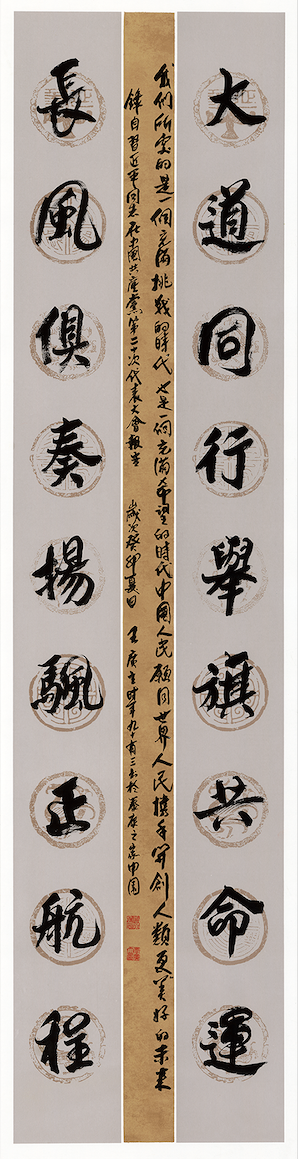 大道同行舉旗共命運
我们所处的是一個充滿挑戰的時代也是一個充滿希望的時代中國人民願同世界人民携手開創人類更美好的未来
錄自習近平同志在中國共產黨第二十次代表大會報告
歲次癸卯夏日
時年九十有三書於
長風俱奏揚颿正航程